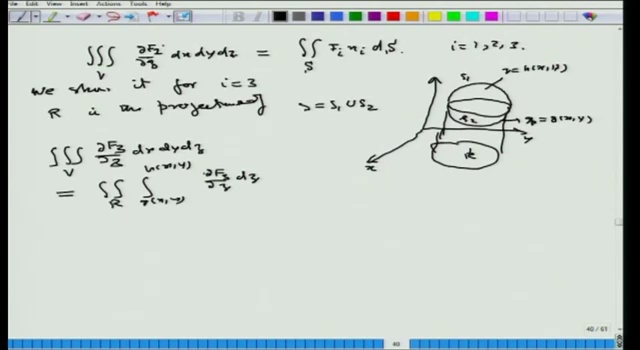 File Edit View Insert Actions Tools Help
∭_V ∂F_i/∂z dx dy dz = ∬_S F_i n_i dS. i = 1, 2, 3.
we show it for i=3
R is the projection of S = S₁ ∪ S₂
∭_V ∂F₃/∂z dx dy dz
= ∬_R ∫_{g(x,y)}^{h(x,y)} ∂F₃/∂z dz
S₁ z=h(x,y)
S₂ z=g(x,y)
y
R
x
40 / 61
40